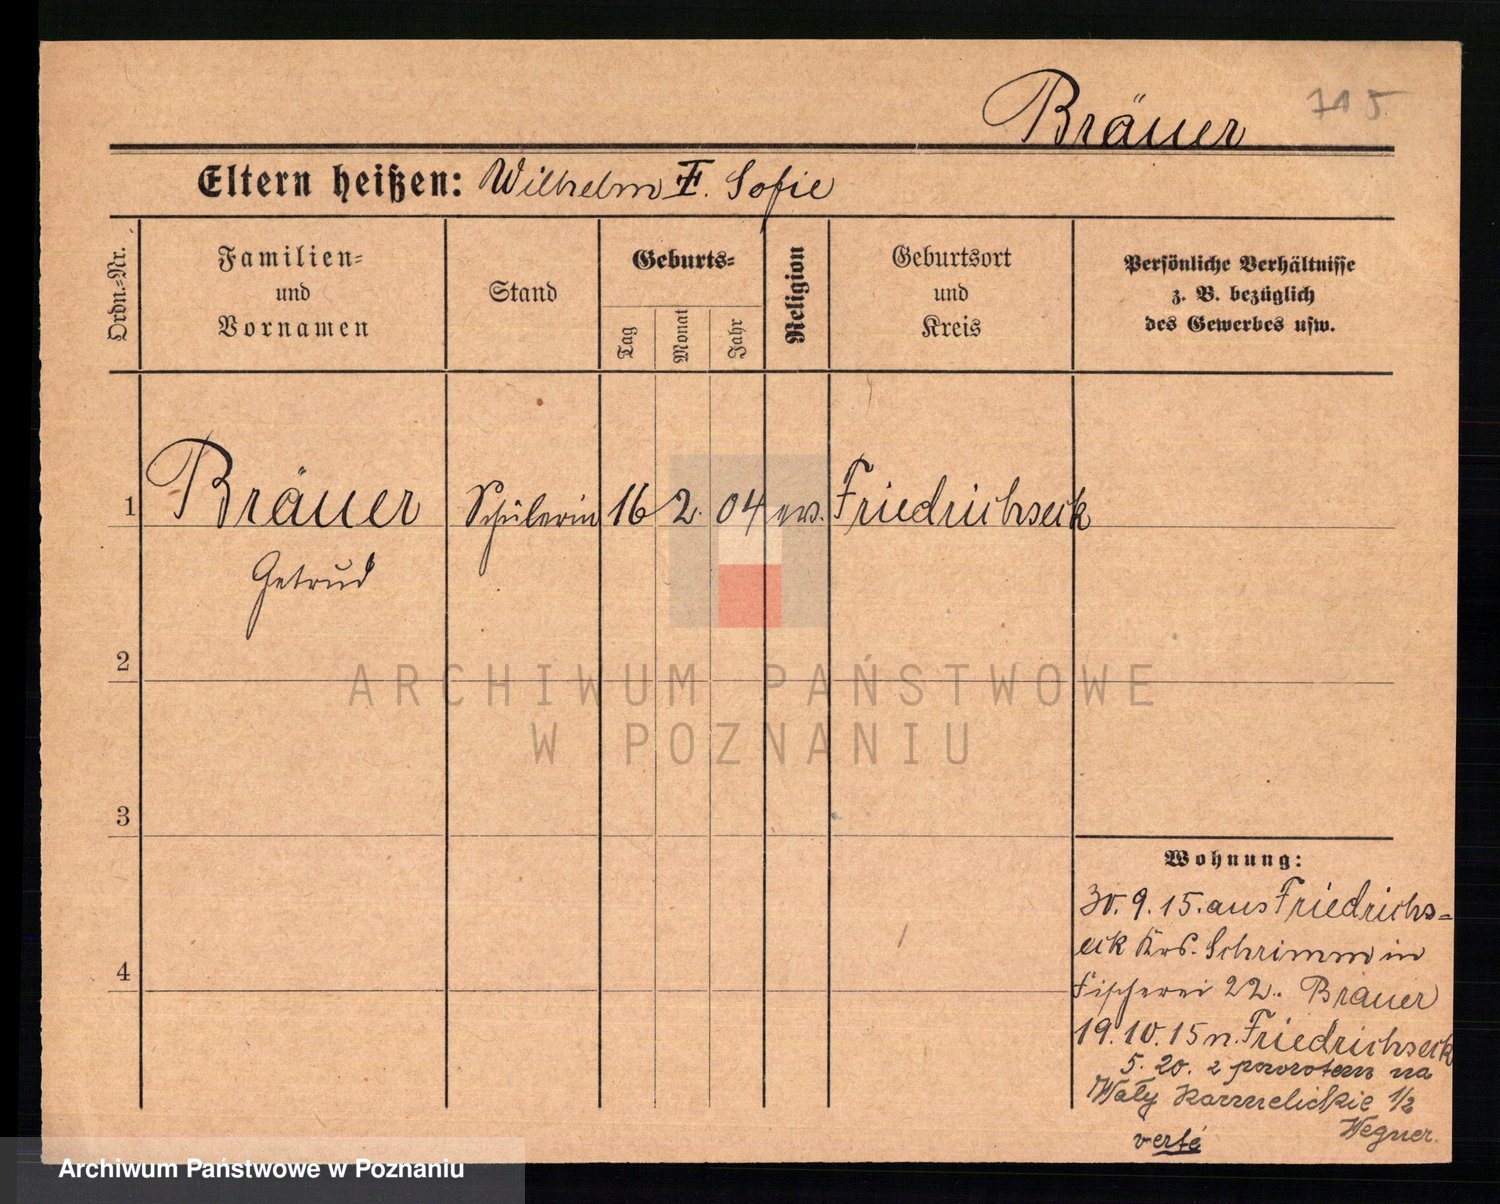 Bräuer 715
Eltern heißen: Wilhelm F. Sofie
Ordn.-Nr.
Familien-
und
Vornamen
Stand
Geburts-
Tag
Monat
Jahr
Religion
Geburtsort
und
Kreis
Persönliche Verhältnisse
z. B. bezüglich
des Gewerbes usw.
1 Bräuer Schülerin 16 2. 04 evs. Friedrichseck
Getrud
2
3
4
Wohnung:
30.9.15. aus Friedrichs-
eck Krs. Schrimm in
Fischerei 22. Bräuer
19.10.15 n. Friedrichseck
5. 20. z powrotem na
Wały Karmelickie 1/2
Wegner.
verte
ARCHIWUM PAŃSTWOWE
W POZNANIU
Archiwum Państwowe w Poznaniu